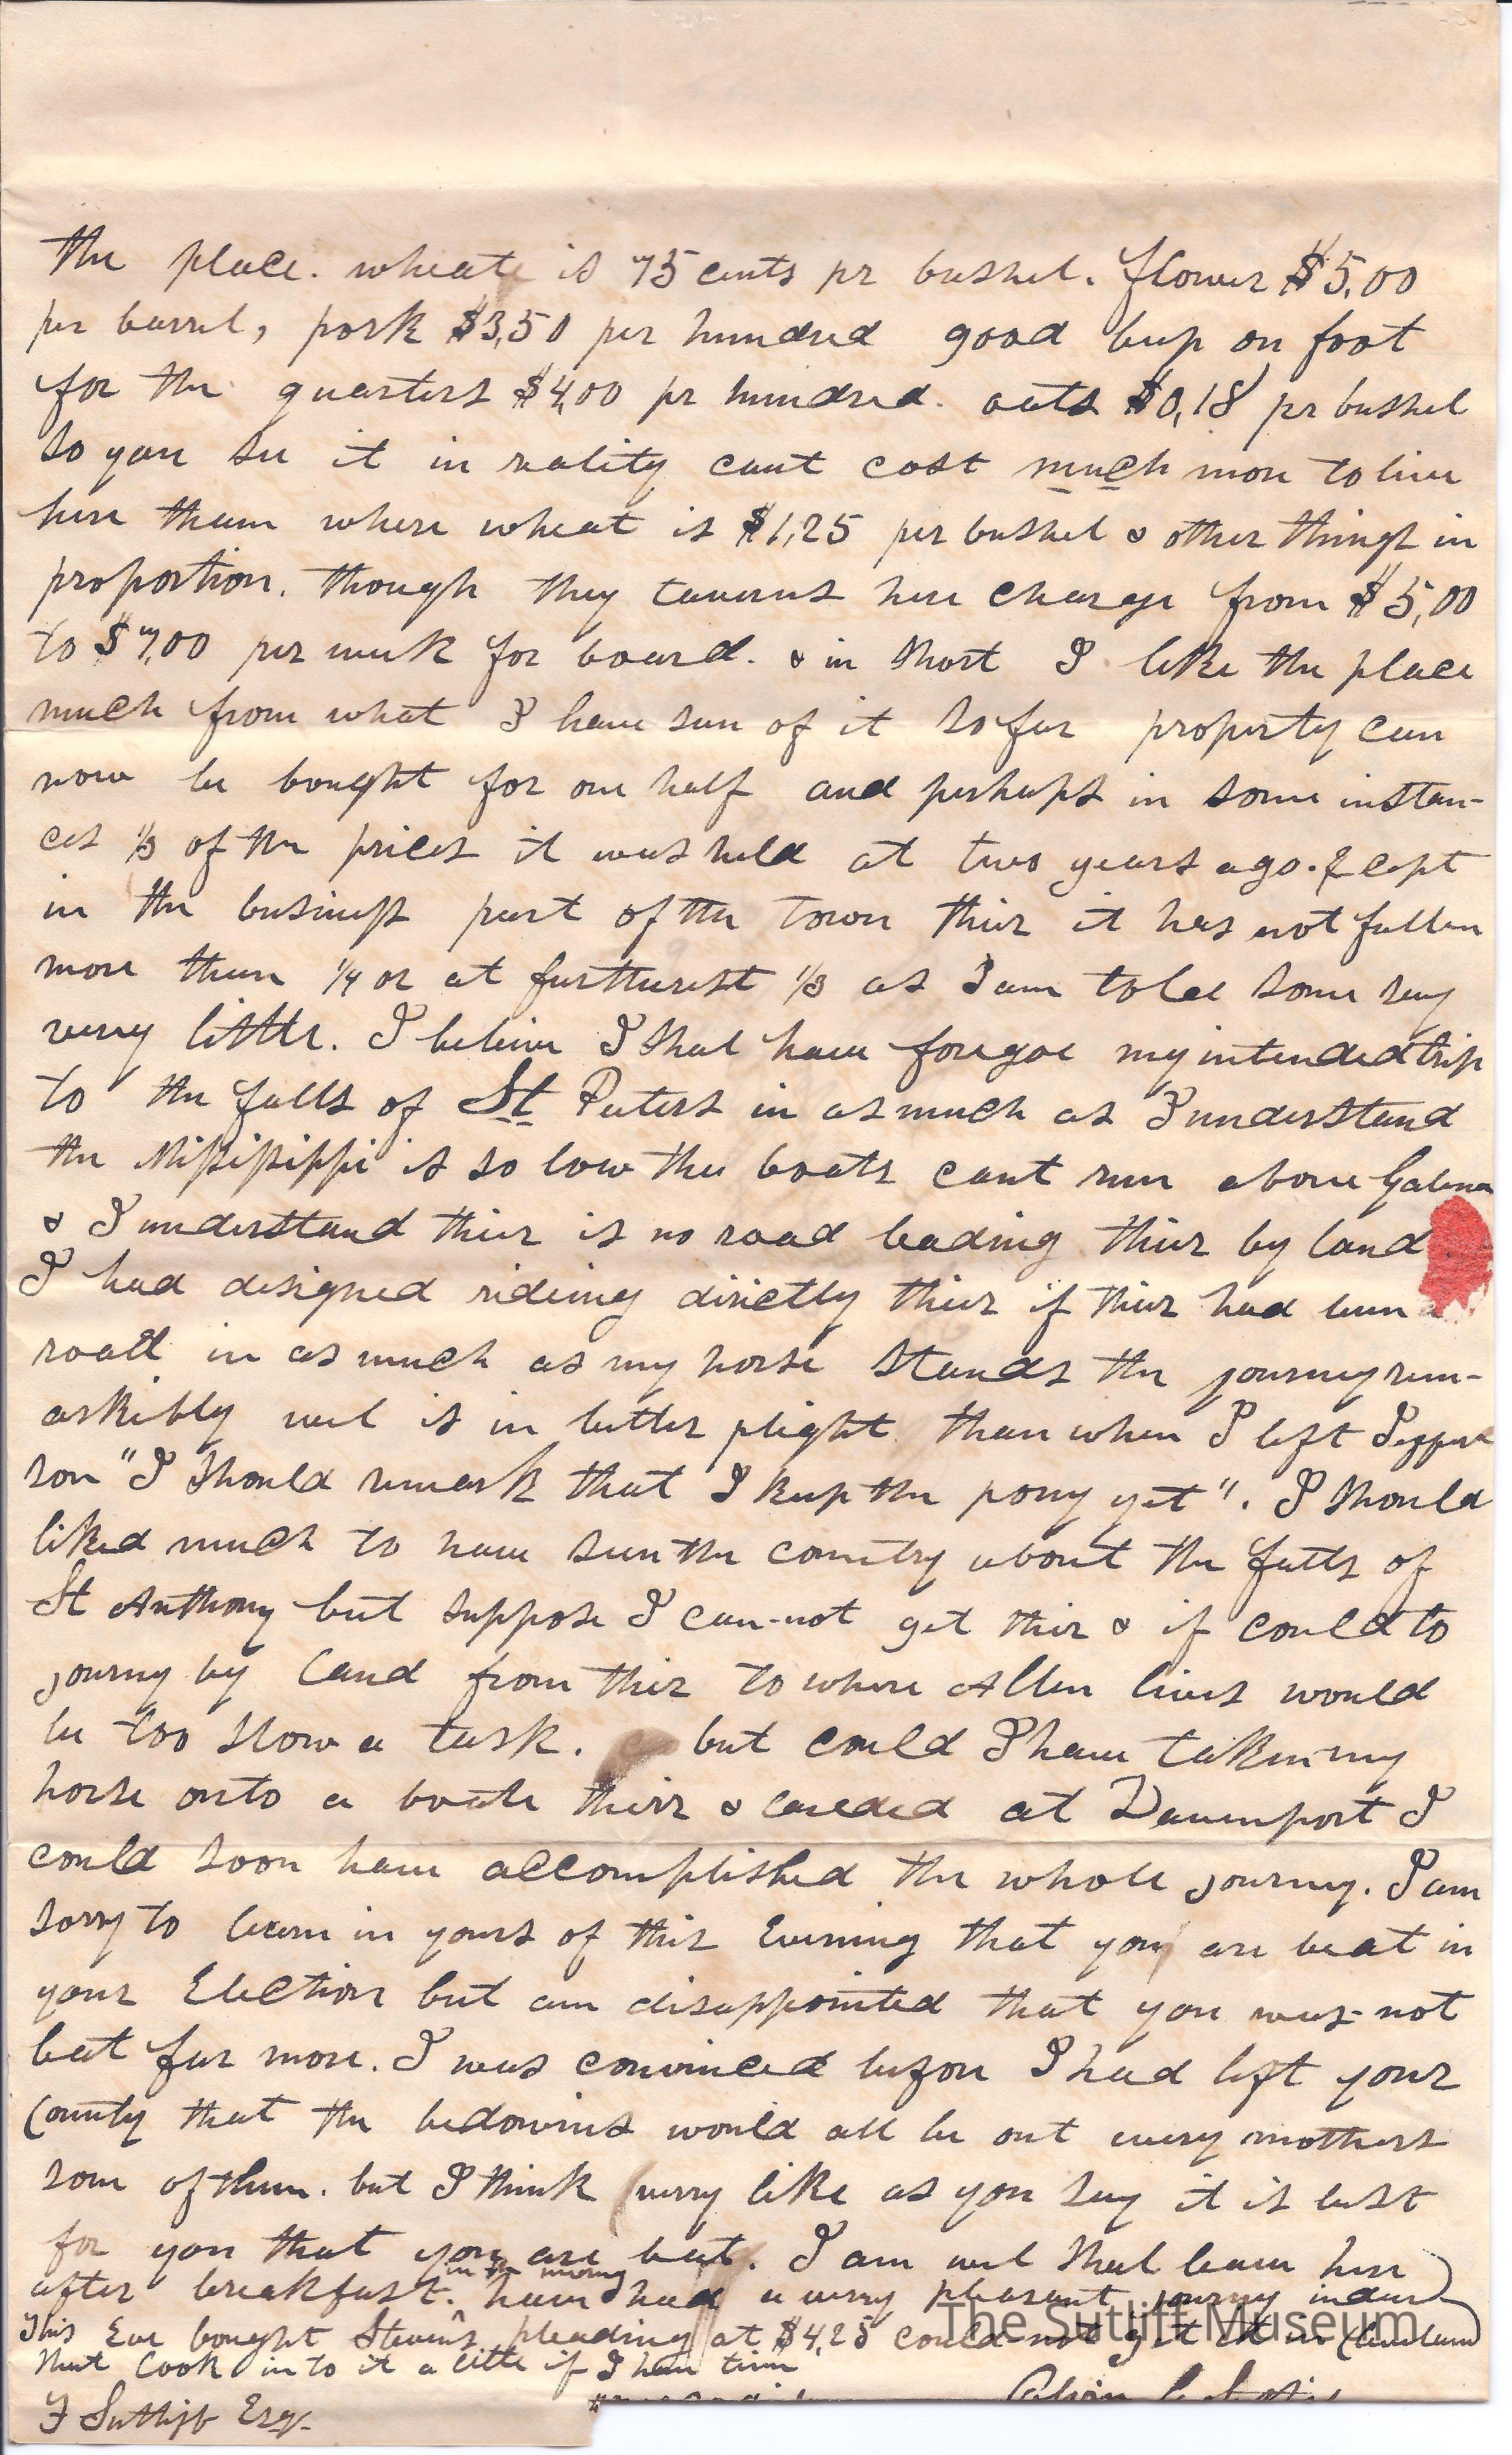 the place. wheate is 75 cents pr bushel. flower $5,00
per barrel, pork $3,50 per hundred good beef on foot
for the quarters $4,00 pr hundred. oats $0,18 pr bushel
so you see it in reality cant cost much more to live
here tham where wheat is $1,25 per bushel & other things in
proportion. though they taverns here charge from $5,00
to $7,00 per week for board. & in short I like the place
much from what I have seen of it so far property can
now be bought for one half and perhaps in some instan-
ces 1/3 of the prices it was held at two years ago. Except
in the business part of the town their it has not fallen
more than 1/4 or at furtherest 1/3 as I am toled some say
very little. I believe I shal have foregoe my intended trip
to the falls of St Peters in as much as I understand
the Missisippi is so low the boats cant run above Galena
& I understand their is no road leading their by land
I had designed rideing directly their if their had been a
road in as much as my horse stands the journey rem-
arkibly wel is in better plight than when I left Jeffer
son "I should remark that I keep the pony yet". I should
liked much to have seen the country about the falls of
St Anthony but suppose I can-not get their & if could to
journy by land from their to where Allen lives would
be too slow a task. but could I have taken my
horse onto a boate their & landed at Davenport I
could soon have accomplished the whole journey. I am
sorry to learn in yours of this Evening that you are beat in
your Election but am disappointed that you was-not
beat far more. I was convinced before I had left your
County that the bedowins would all be out every mothers
son of them. but I think verry like as you say it is best
for you that you are beat. I am wel shal leave here
in the morning
after breakfast. have had a very pleasant journey indeed
This Eve bought Stevens pleading at $4,25 could not get it in Cleveland
shal look in to it a little if I have time
Calvin
F Sutliff Esqr.
The Sutliff Museum